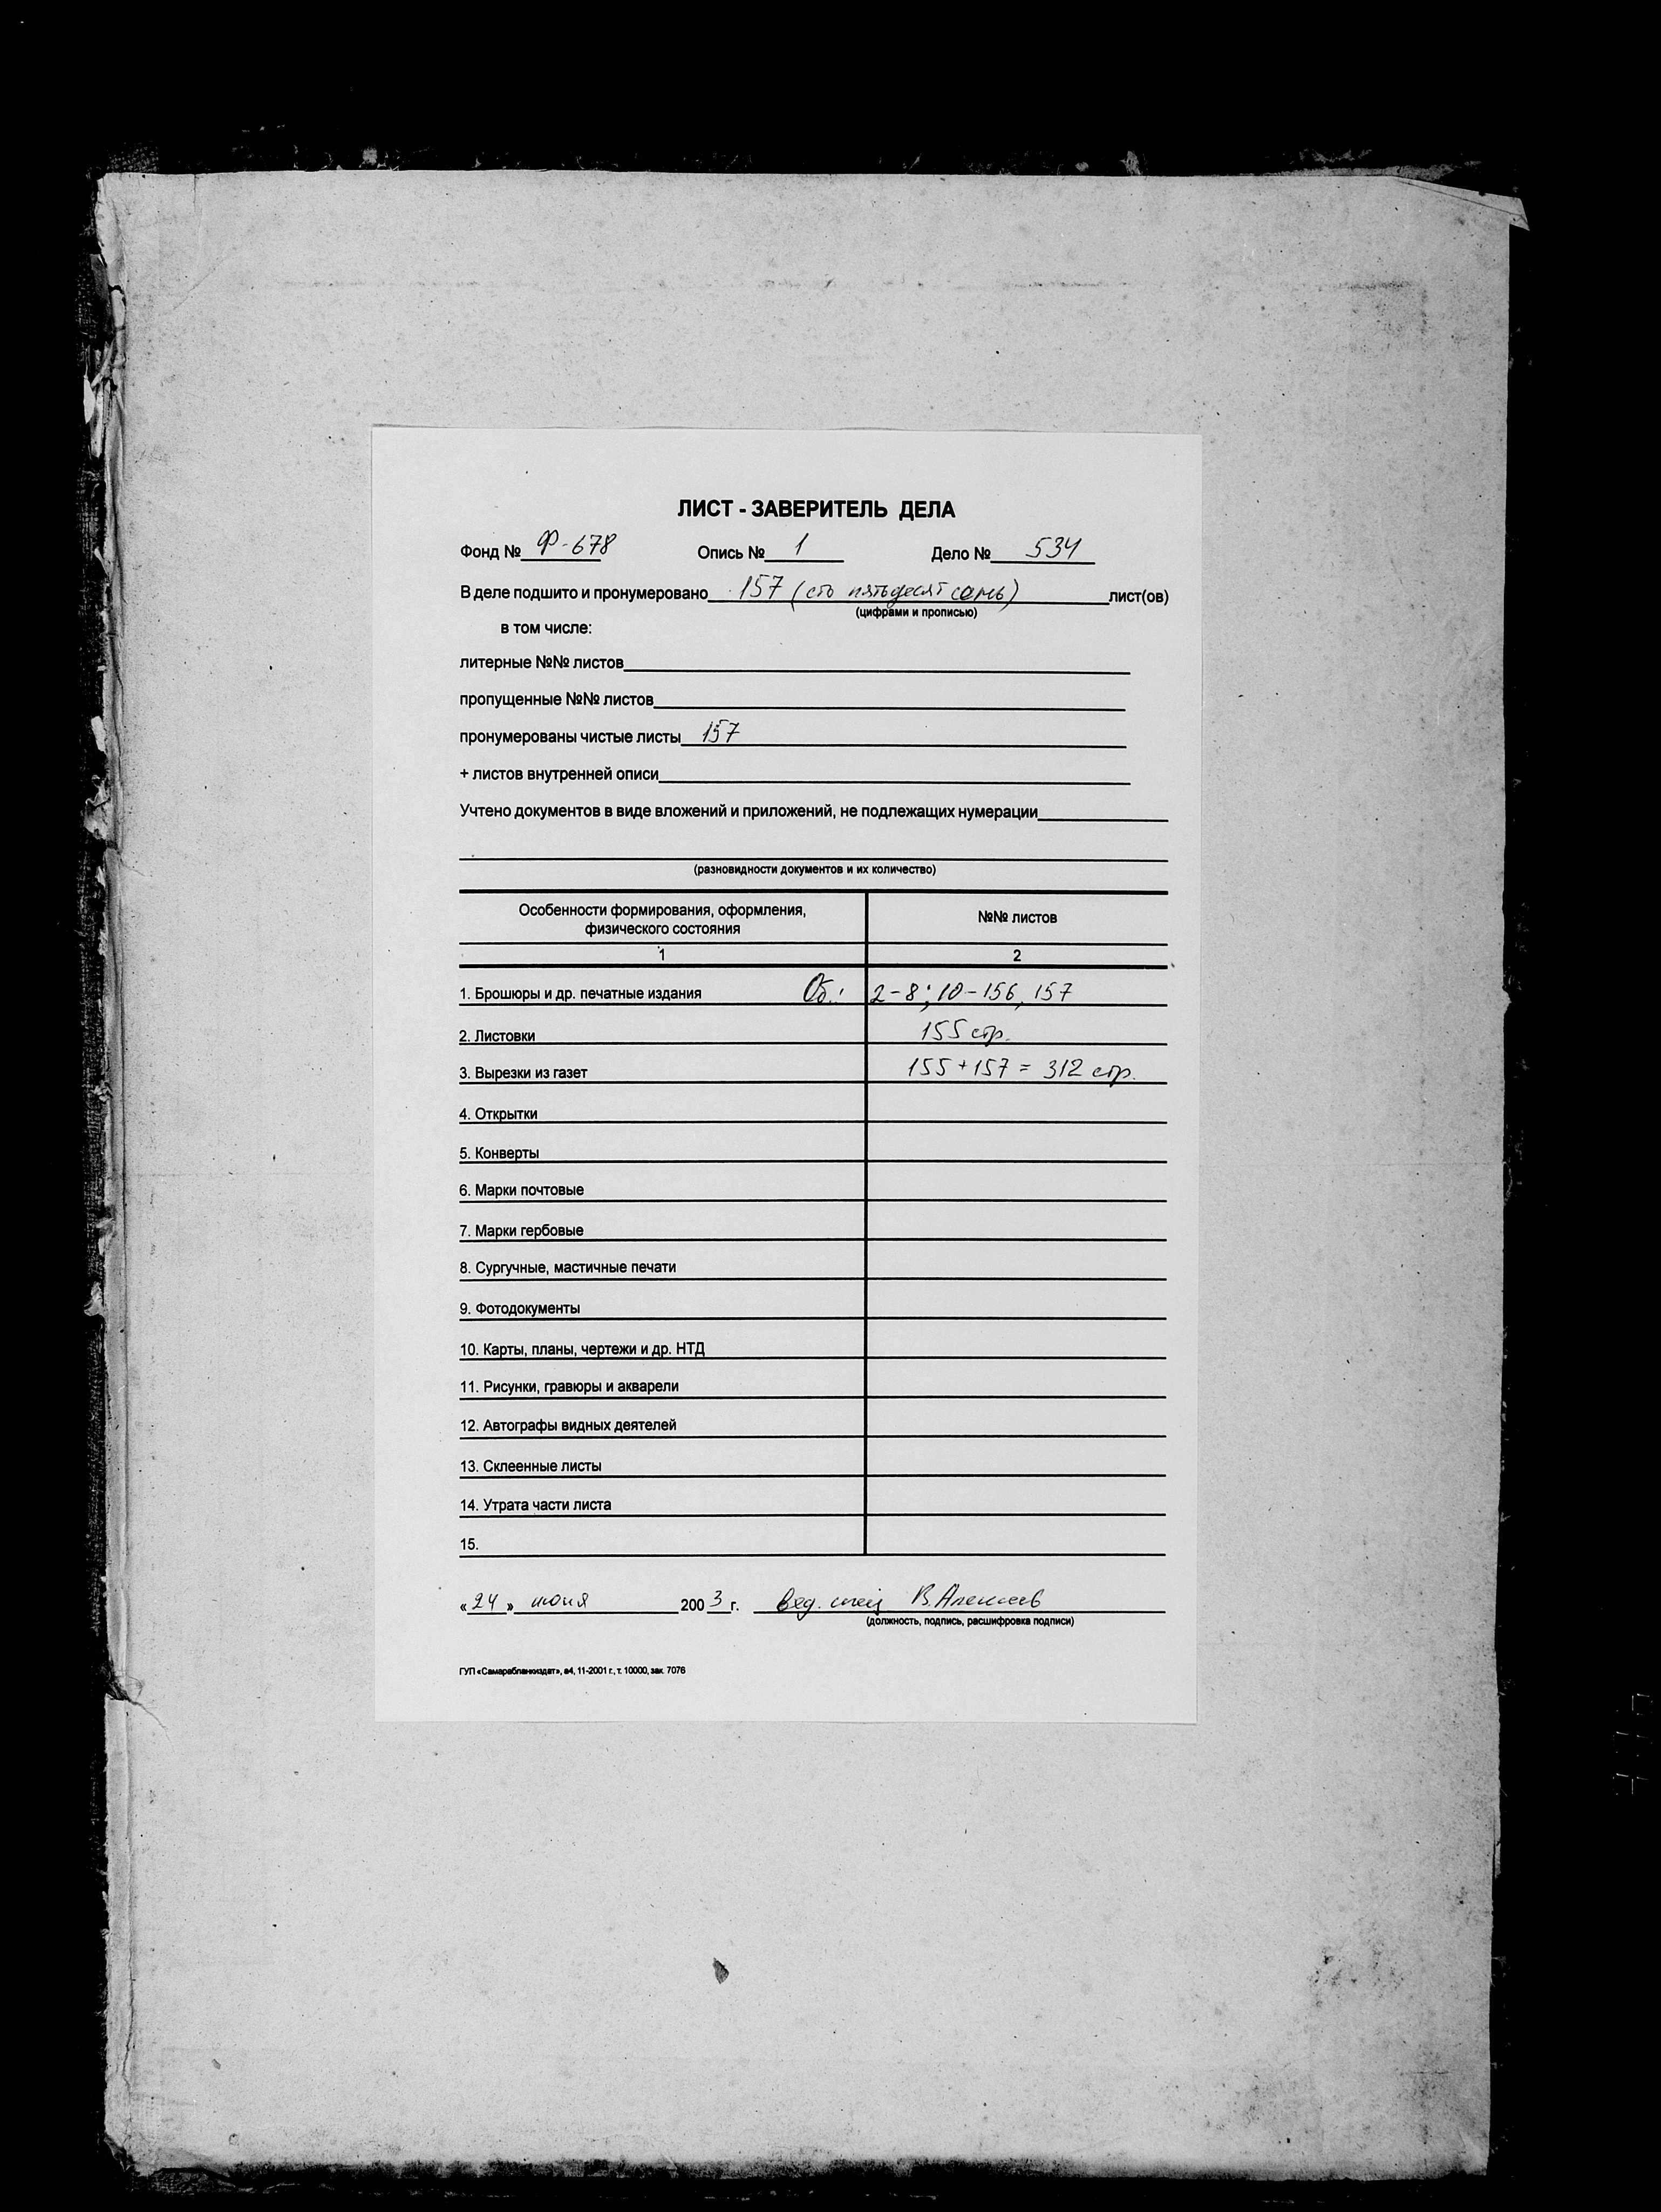 ЛИСТ - ЗАВЕРИТЕЛЬ ДЕЛА
Фонд № Ф-678 Опись № 1 Дело № 534
В деле подшито и пронумеровано 157 (сто пятьдесят семь) лист(ов)
(цифрами и прописью)
в том числе:
литерные №№ листов
пропущенные №№ листов
пронумерованы чистые листы 157
+ листов внутренней описи
Учтено документов в виде вложений и приложений, не подлежащих нумерации
(разновидности документов и их количество)
Особенности формирования, оформления, №№ листов
физического состояния
1 2
1. Брошюры и др. печатные издания Об.: 2-8; 10-156, 157
2. Листовки 155 стр.
3. Вырезки из газет 155+157 = 312 стр.
4. Открытки
5. Конверты
6. Марки почтовые
7. Марки гербовые
8. Сургучные, мастичные печати
9. Фотодокументы
10. Карты, планы, чертежи и др. НТД
11. Рисунки, гравюры и акварели
12. Автографы видных деятелей
13. Склеенные листы
14. Утрата части листа
15.
«24» июня 2003 г. вед. спец В.
(должность, подпись, расшифровка подписи)
ГУП «Самарабланкиздат», а4, 11-2001 г., т. 10000, зак. 7076